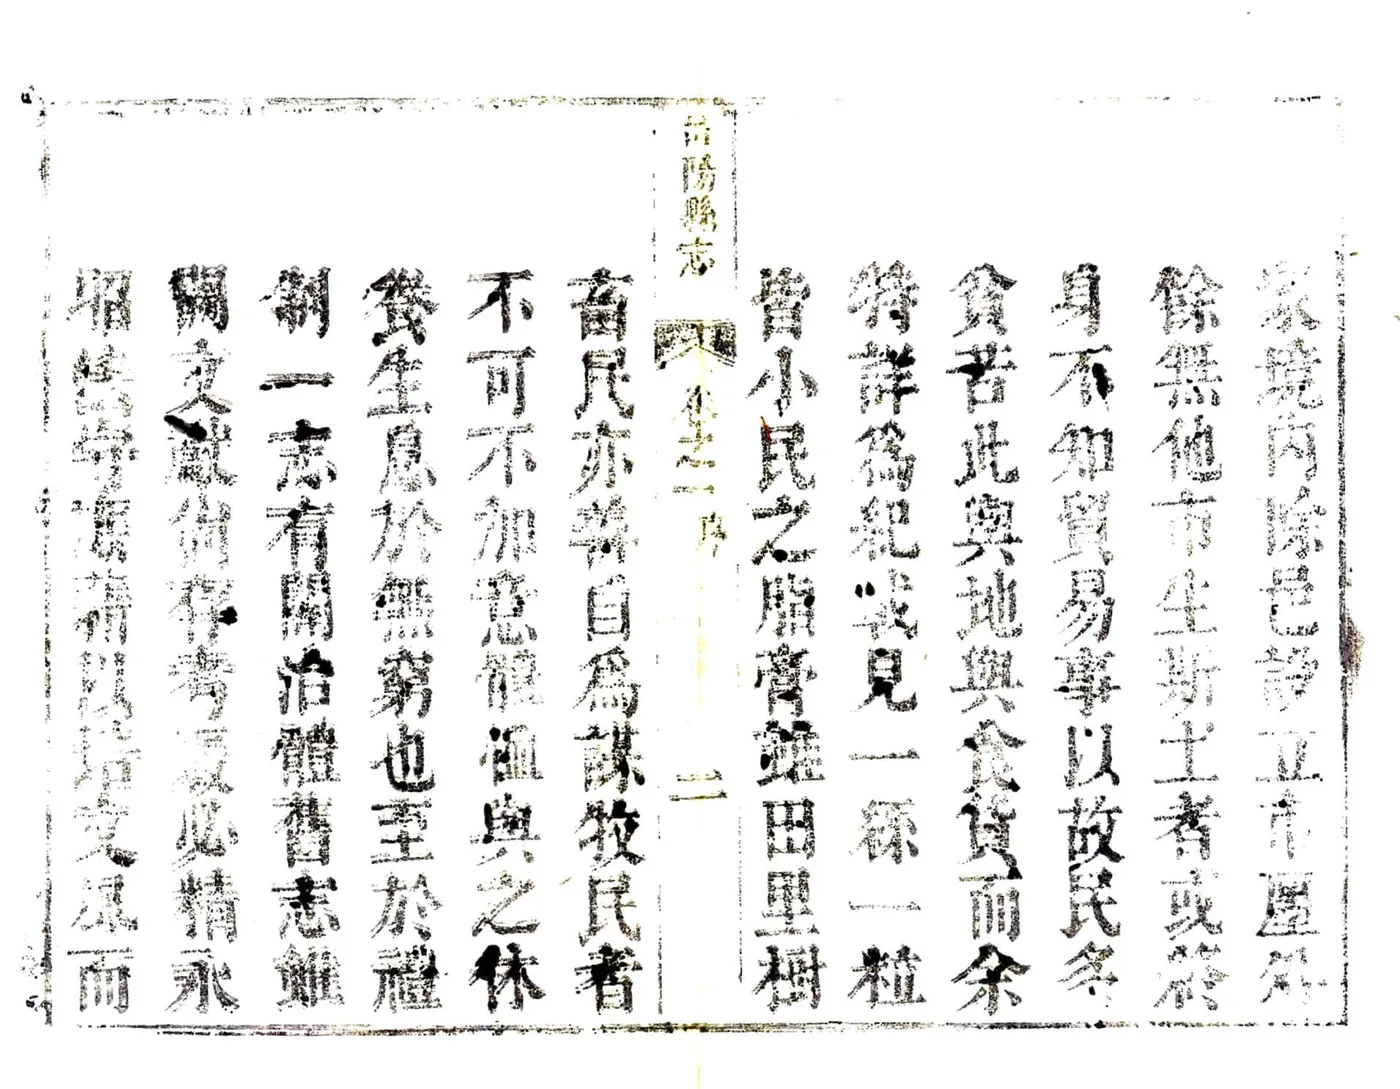 家境内除邑診立市厘外
餘無他市生斯土者或終
身不知貿易事以故民多
貧苦此輿地與食貨而余
特詳為紀載見一絲一粒
皆小民之脂膏雖田里樹
陽縣志
卷之一 序
二
畜民亦善自為謀牧民者
不可不加意體恤與之休
養生息於無窮也至於禮
制一志有關治體舊志雖
闕文獻尚存考覈必精永
昭法守振藉以培文風而